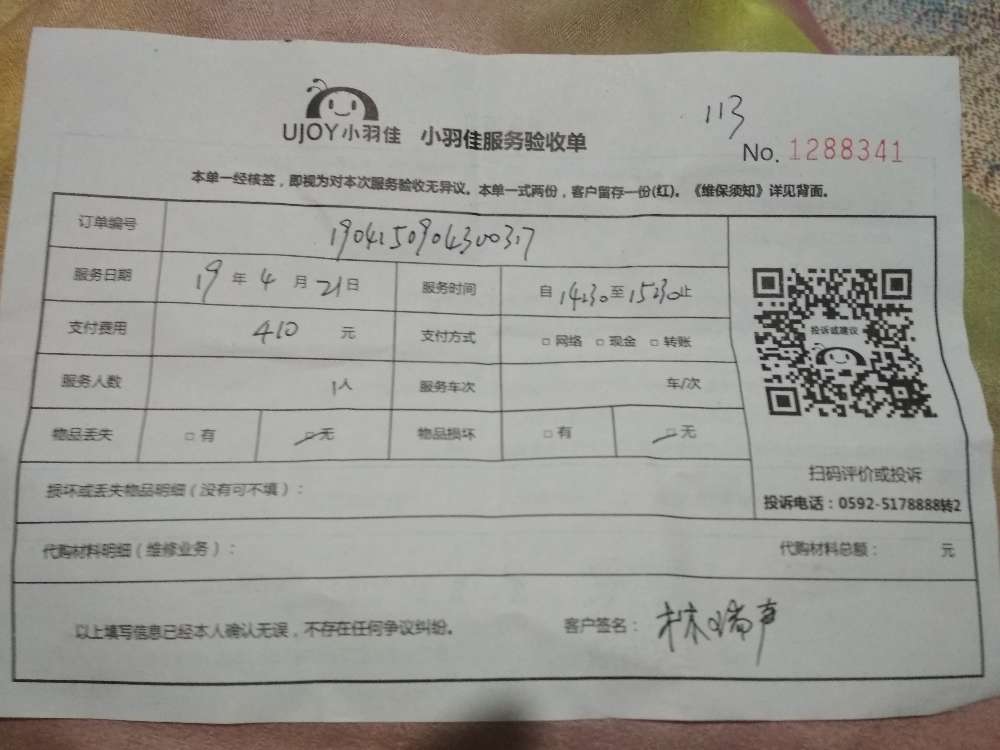 113
UJOY小羽佳 小羽佳服务验收单
No. 1288341
本单一经核签，即视为对本次服务验收无异议。本单一式两份，客户留存一份(红)。《维保须知》详见背面。
订单编号 1904150904300317
服务日期 19年4月21日 服务时间 自14:30至15:30止
支付费用 410 元 支付方式 □网络 □现金 □转账
投诉或建议
服务人数 1人 服务车次 车/次
物品丢失 □有 □无 物品损坏 □有 □无
扫码评价或投诉
损坏或丢失物品明细（没有可不填）：
投诉电话：0592-5178888转2
代购材料明细（维修业务）： 代购材料总额： 元
以上填写信息已经本人确认无误，不存在任何争议纠纷。 客户签名：林瑞声